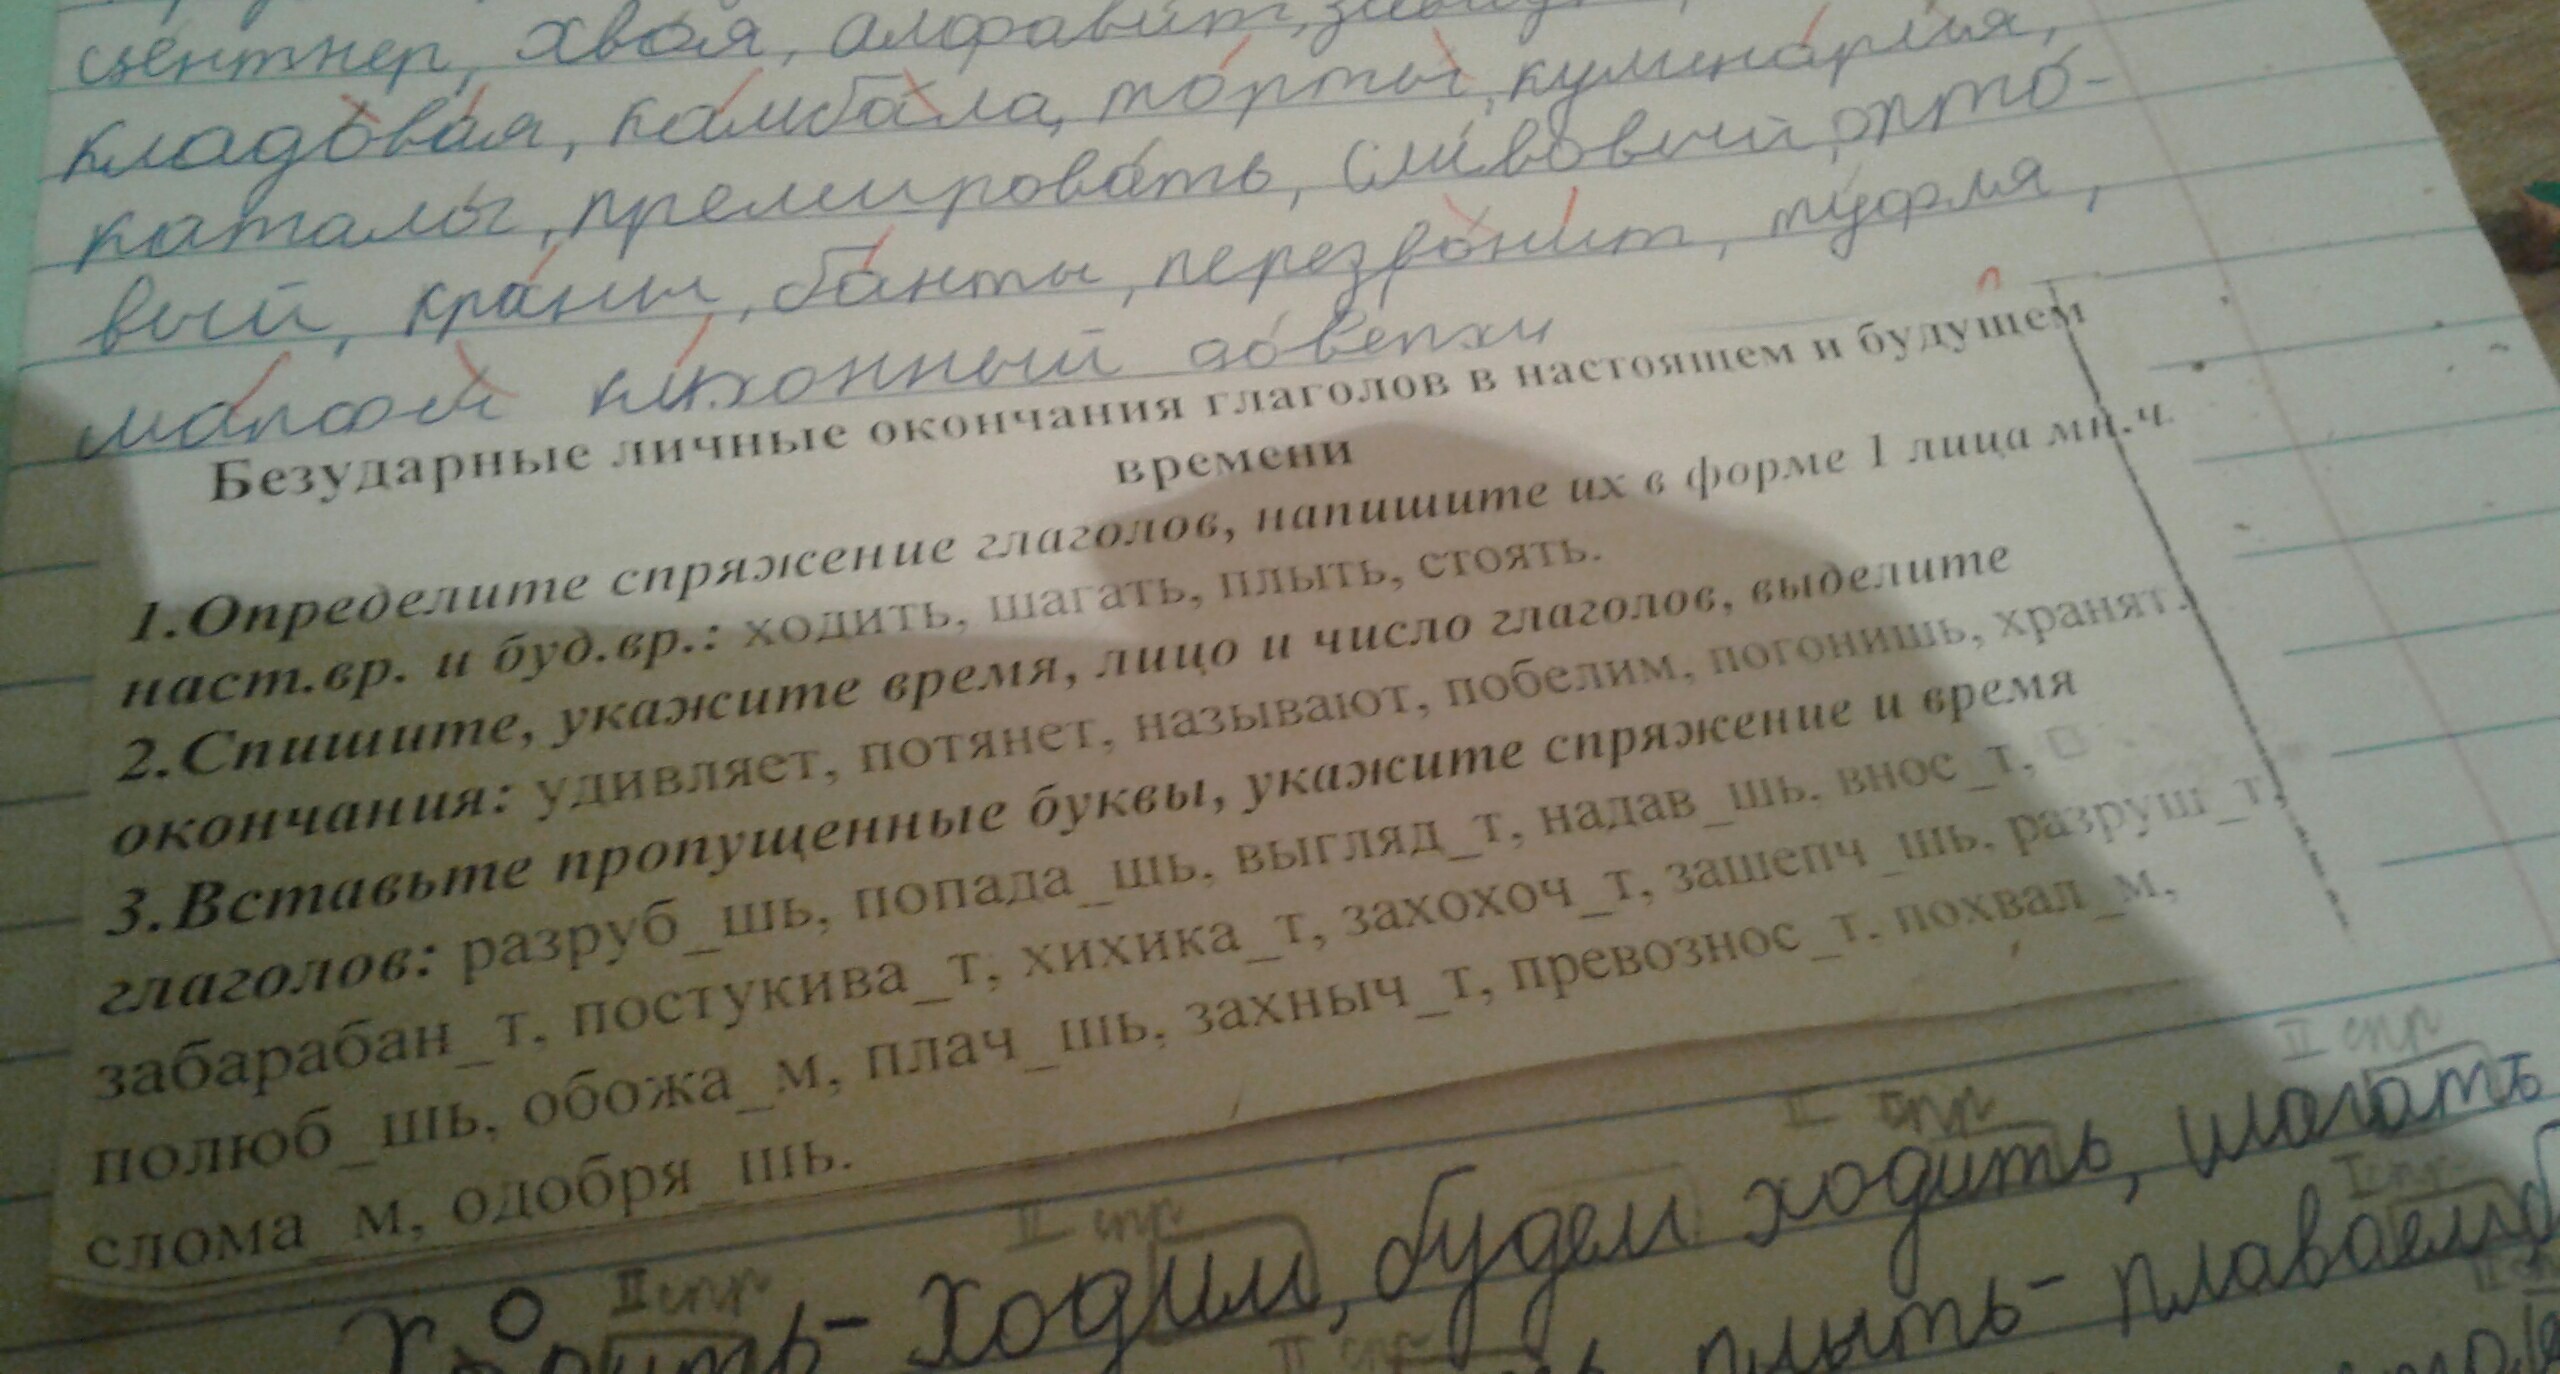 центнер, хвоя, алфавит,
кладовая, камбала, торты, кулинария,
каталы, премировать, сливовый, опто-
вый, краны, банты, перезвонит, туфля,
шарфы кухонный доверху
Безударные личные окончания глаголов в настоящем и будущем
времени
1.Определите спряжение глаголов, напишите их в форме 1 лица мн.ч.
наст.вр. и буд.вр.: ходить, шагать, плыть, стоять.
2.Спишите, укажите время, лицо и число глаголов, выделите
окончания: удивляет, потянет, называют, побелим, погонишь, хранят.
3.Вставьте пропущенные буквы, укажите спряжение и время
глаголов: разруб_шь, попада_шь, выгляд_т, надав_шь, внос_т,
забарабан_т, постукива_т, хихика_т, захохоч_т, зашепч_шь, разруш_т,
полюб_шь, обожа_м, плач_шь, захныч_т, превознос_т, похвал_м,
слома_м, одобря_шь.
II спр II спр II спр II спр
ходить - ходим, будем ходить, шагать
II спр I спр
плыть - плаваем